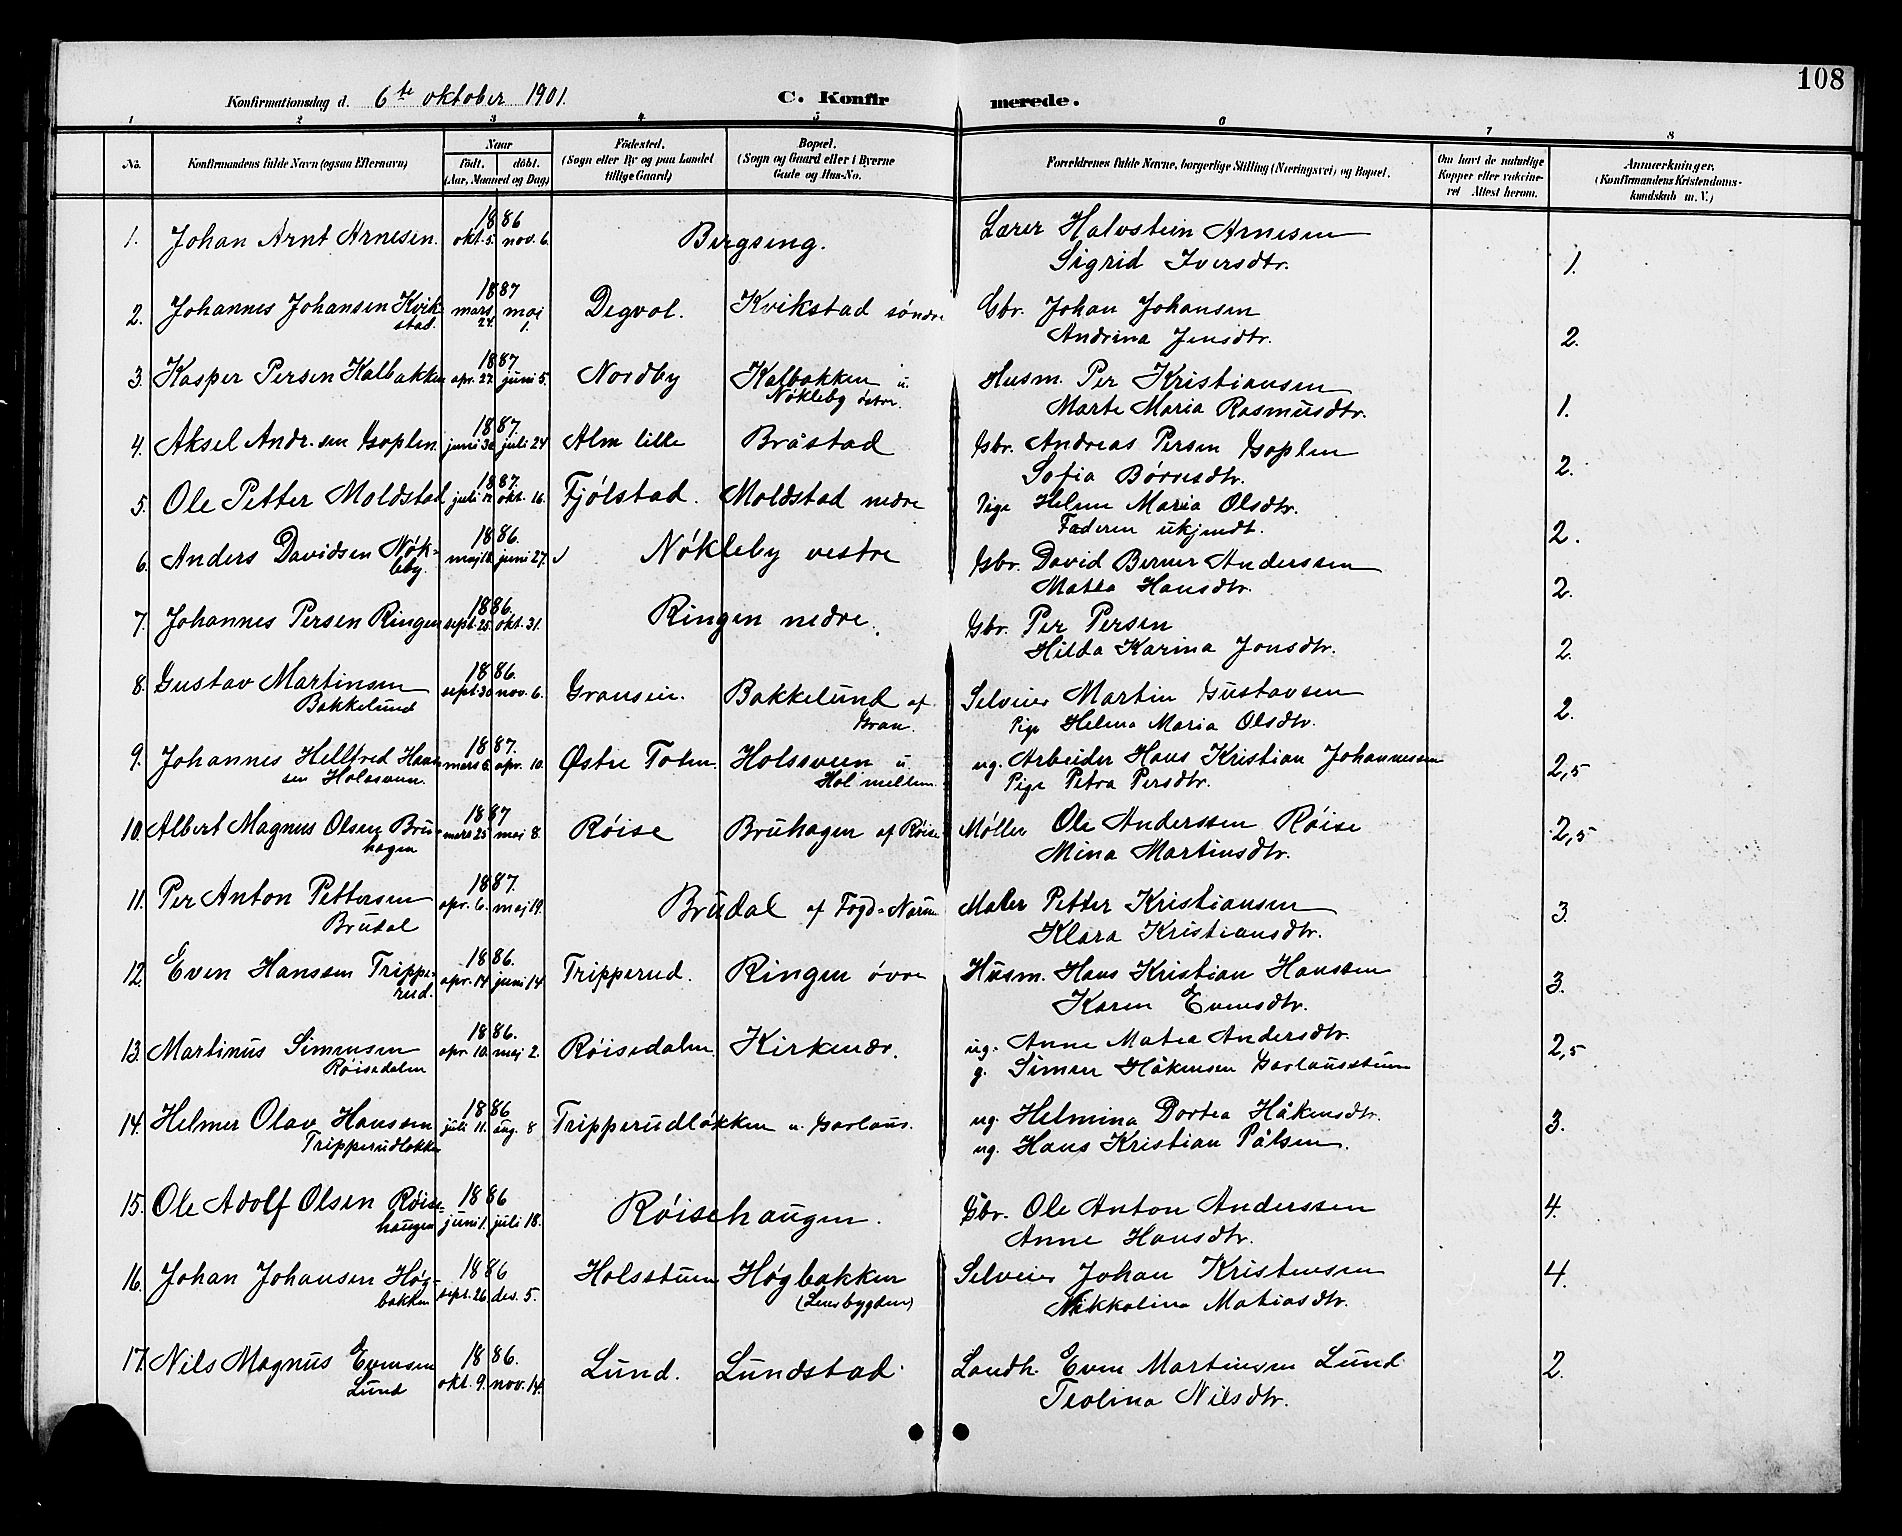 108
Konfirmationsdag d. 6te oktober 1901.
C. Konfirmerede.
1 2 3 4 5 6 7 8
No.
Konfirmandens fulde Navn (ogsaa Efternavn)
Naar
født. døbt.
(Aar, Maaned og Dag)
Fødested.
(Sogn eller By og paa Landet tillige Gaard)
Bopæl.
(Sogn og Gaard eller i Byerne Gade og Hus-No.
Forældrenes fulde Navne, borgerlige Stilling (Næringsvei) og Bopæl.
Om havt de naturlige Kopper eller vakcineret Attest herom.
Anmærkninger.
(Konfirmandens Kristendomskundskab m. V.)
1. Johan Arnt Arnesen. 1886 okt. 5. nov. 6. Bergseng. Lærer Halvstein Arnesen
Sigrid Iversdtr. 1.
2. Johannes Johansen Kvikstad. 1887 mars 24. maj 1. Degvol. Kvikstad søndre Gbr. Johan Johansen
Andrina Jensdtr. 2.
3. Kasper Persen Kalbakken 1887 apr. 27. juni 5. Nordby Kalbakken u. Nøkleby østre. Husm. Per Kristiansen
Marte Maria Rasmusdtr. 1.
4. Aksel Andr.sen Goplen. 1887. juni 30 juli 24 Alm lille Bråstad Gbr. Andreas Persen Goplen
Sofia Børresdtr. 2.
5. Ole Petter Moldstad 1887. juli okt. 16. Fjølstad. Moldstad nedre Pige Helene Maria Olsdtr.
Faderen ukjendt. 2.
6. Anders Davidsen Nøkleby. 1886. maj 18. juni 27. Nøkleby vestre Gbr. David Berner Anderssen
Matea Hansdtr. 2.
7. Johannes Persen Ringen 1886. sept. 25. okt. 31. Ringen nedre. Gbr. Per Persen
Hilda Karina Jonsdtr. 2.
8. Gustav Martinsen Bakkelund 1886. sept. 30 nov. 6. Granseie. Bakkelund af Gran. Selveier Martin Gustavsen
Pige Helena Maria Olsdtr. 2.
9. Johannes Hellfred Hanssen Holssveen. 1887. mars 6. apr. 10. Østre Toten Holssveen u Hol mellem. ug. Arbeider Hans Kristian Johannessen
Pige Petra Persdtr. 2,5
10. Albert Magnus Olsen Bruhagen 1887 mars 25 maj 8. Røise Bruhagen af Røise Møller Ole Anderssen Røise
Mina Martinsdtr. 2,5
11. Per Anton Pettersen Brudal 1887. apr. 6. maj 19. Brudal af Fogd-Narum Maler Petter Kristiansen
Klara Kristiansdtr. 3.
12. Even Hanssen Tripperud. 1886. apr. 14 juni 14 Tripperud. Ringen øvre Husm. Hans Kristian Hanssen
Karen Evensdtr. 3.
13. Martinus Simensen Røisedalen 1886. apr. 10. maj 2. Røisedalen. Kirkenær. ug. Anne Matea Andersdtr.
g. Simen Håkensen Garlausstuen 2,5
14. Helmer Olav Hanssen Tripperudløkken 1886 juli 11. aug. 8 Tripperudløkken u. Garlaus. ug. Helmina Dortea Håkensdtr.
ug. Hans Kristian Pålsen. 3.
15. Ole Adolf Olsen Røisehaugen 1886 juni 1. juli 18. Røisehaugen. Gbr. Ole Anton Anderssen
Anne Hansdtr. 4.
16. Johan Johansen Høgbakken 1886 sept. 26. des. 5. Holsstuen Høgbakken (Lensbygden) Selveier Johan Kristensen
Nikkolina Matiasdtr. 4.
17. Nils Magnus Evensen Lund 1886. okt. 9. nov. 14. Lund. Lundstad. Landh. Even Martinsen Lund
Teolina Nilsdtr. 2.